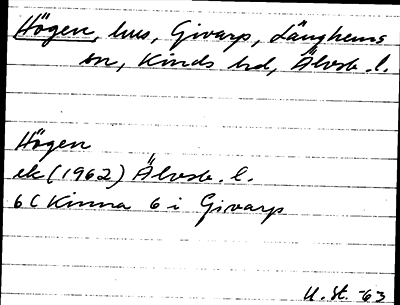 Högen, hus, Givarp, Länghems
sn, Kinds hd, Älvsb. l.
Högen
ek (1962) Älvsb. l.
6 C Kinna 6 i Givarp
U. St. -63